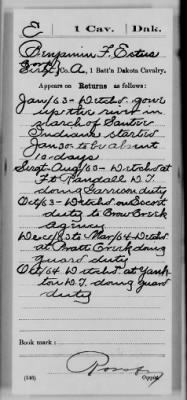 E | 1 Cav. | Dak.
Benjamin F. Estus
Sergt, Co. A, 1 Batt'n Dakota Cavalry.
Appears on Returns as follows:
Jan/63 - Detchd. gone
up the river in
search of Santee
Indians started
Jan 30 to be absent
10 days
Sept-Aug/63 - Detchd at
Ft. Randall D.T.
doing Garrison duty
Oct/63 - Detchd on Escort
duty to Crow Creek
agency
Dec/63 to Mar/64 - Detchd
at Bratt Creek doing
guard duty
Oct/64 Detchd at Yank-
ton D.T. doing guard
duty
Book mark:
(546)
Copyist.